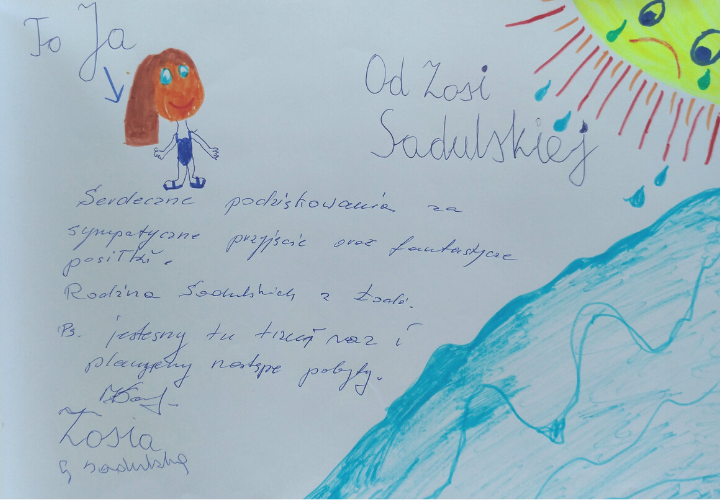 To Ja
Od Zosi
Sadulskiej
Serdeczne podziękowania za
sympatyczne przyjęcie oraz fantastyczne
posiłki.
Rodzina Sadulskich z Łodzi.
PS. jesteśmy tu trzeci raz i
planujemy następne pobyty.
Zosia
Sadulska